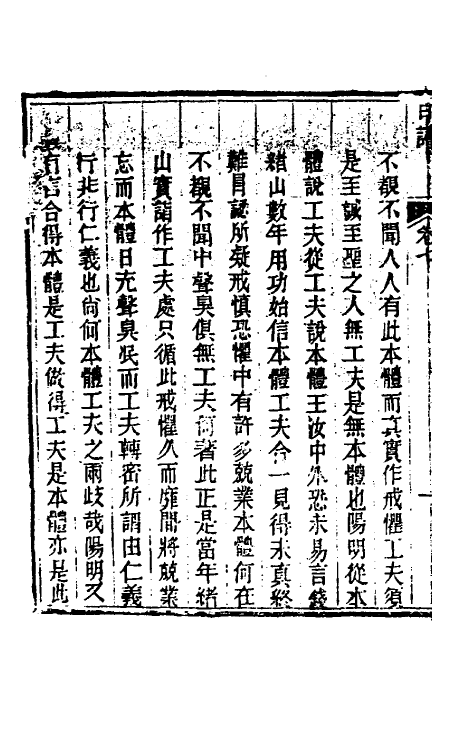 不覩不聞人人有此本體而真實作戒懼工夫須
是至誠至聖之人無工夫是無本體也陽明從本
體說工夫從工夫說本體王汝中外恐未易言錢
緒山數年用功始信本體工夫合一見得未真終
難冐認所疑戒慎恐懼中有許多兢業本體何在
不覩不聞中聲臭俱無工夫何著此正是當年緒
山實詣作工夫處只循此戒懼久而雍閒將兢業
忘而本體日充聲臭泯而工夫轉密所謂由仁義
行非行仁義也尙何本體工夫之兩歧哉陽明又
有言合得本體是工夫做得工夫是本體亦是此
卷七